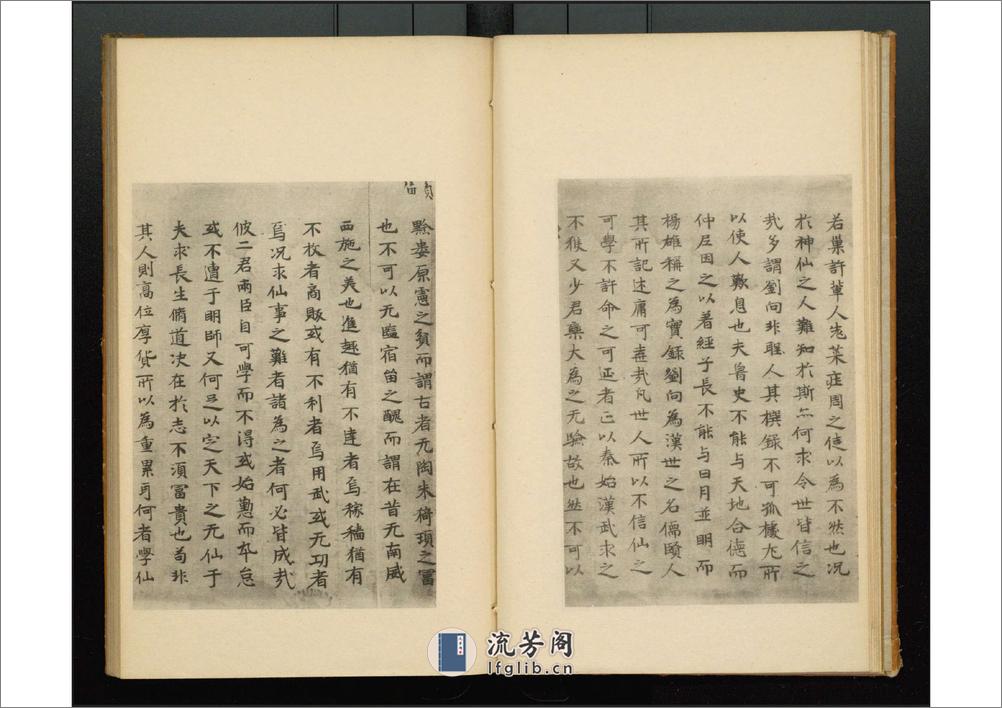 若巢許軰人老萊庄周之徒以為不然也况
於神仙之人難知於斯亦何求令世皆信之
哉多謂劉向非聖人其撰錄不可孤據尤所
以使人歎息也夫魯史不能与天地合德而
仲尼因之以著經子長不能与日月並明而
楊雄稱之為實録劉向為漢世之名儒賢人
其所記述庸可弃哉凡世人所以不信仙之
可學不許命之可延者正以秦始漢武求之
不獲又少君欒大為之无驗故也然不可以
黔婁原憲之貧而謂古者无陶朱猗頓之冨
也不可以无塩宿笛之醜而謂在昔无南威
西施之美也進趍猶有不達者焉稼穡猶有
不收者商販或有不利者焉用武或无功者
焉况求仙事之難者諸為之者何必皆成哉
彼二君兩臣自可學而不得或始懃而卒怠
或不遭于明師又何足以定天下之无仙于
夫求長生脩道决在於志不湏冨貴也苟非
其人則高位厚貨所以為重累耳何者學仙
流芳阁
lfglib.cn